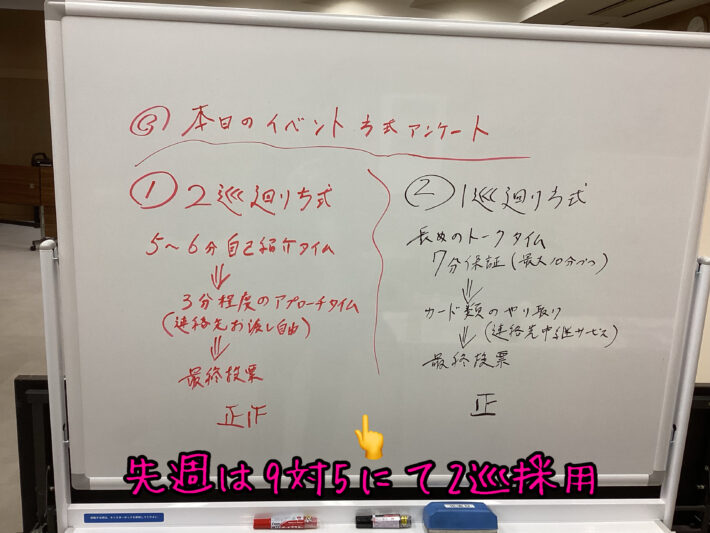 ③ 本日のイベント方式アンケート
① 2巡廻り方式
5～6分自己紹介タイム
⇓
3分程度のアプローチタイム
(連絡先お渡し自由)
⇓
最終投票
正
② 1巡廻り方式
長めのトークタイム
7分保証(最大10分づつ)
⇓
カード類のやり取り
⇓ (連絡先中継サービス)
最終投票
正
先週は9対5にて2巡採用